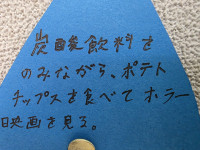 炭酸飲料を
のみながら、ポテト
チップスを食べてホラー
映画を見る。